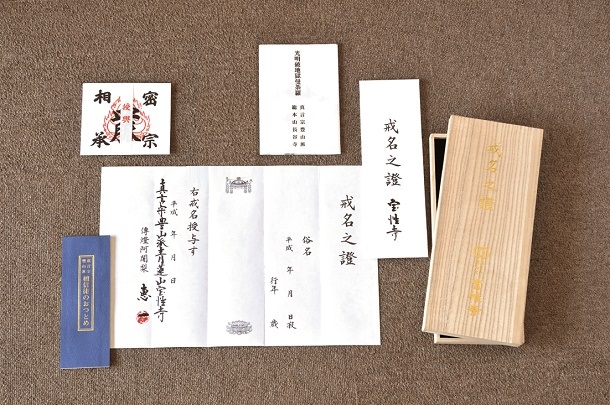 密宗
相承
授與
光明破地獄曼荼羅
真言宗豊山派
総本山長谷寺
戒名之證 宝性寺
戒名之證
戒名之證
俗名
平成 年 月 日歿
行年 歳
右戒名授与す
平成 年 月 日
真言宗豊山派青蓮山宝性寺
傳燈阿闍梨 恵一
真言宗
豊山派
檀信徒のおつとめ